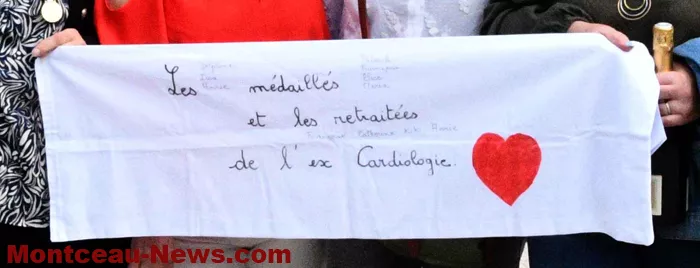 Les médaillés
et les retraitées
de l'ex Cardiologie.
Montceau-News.com